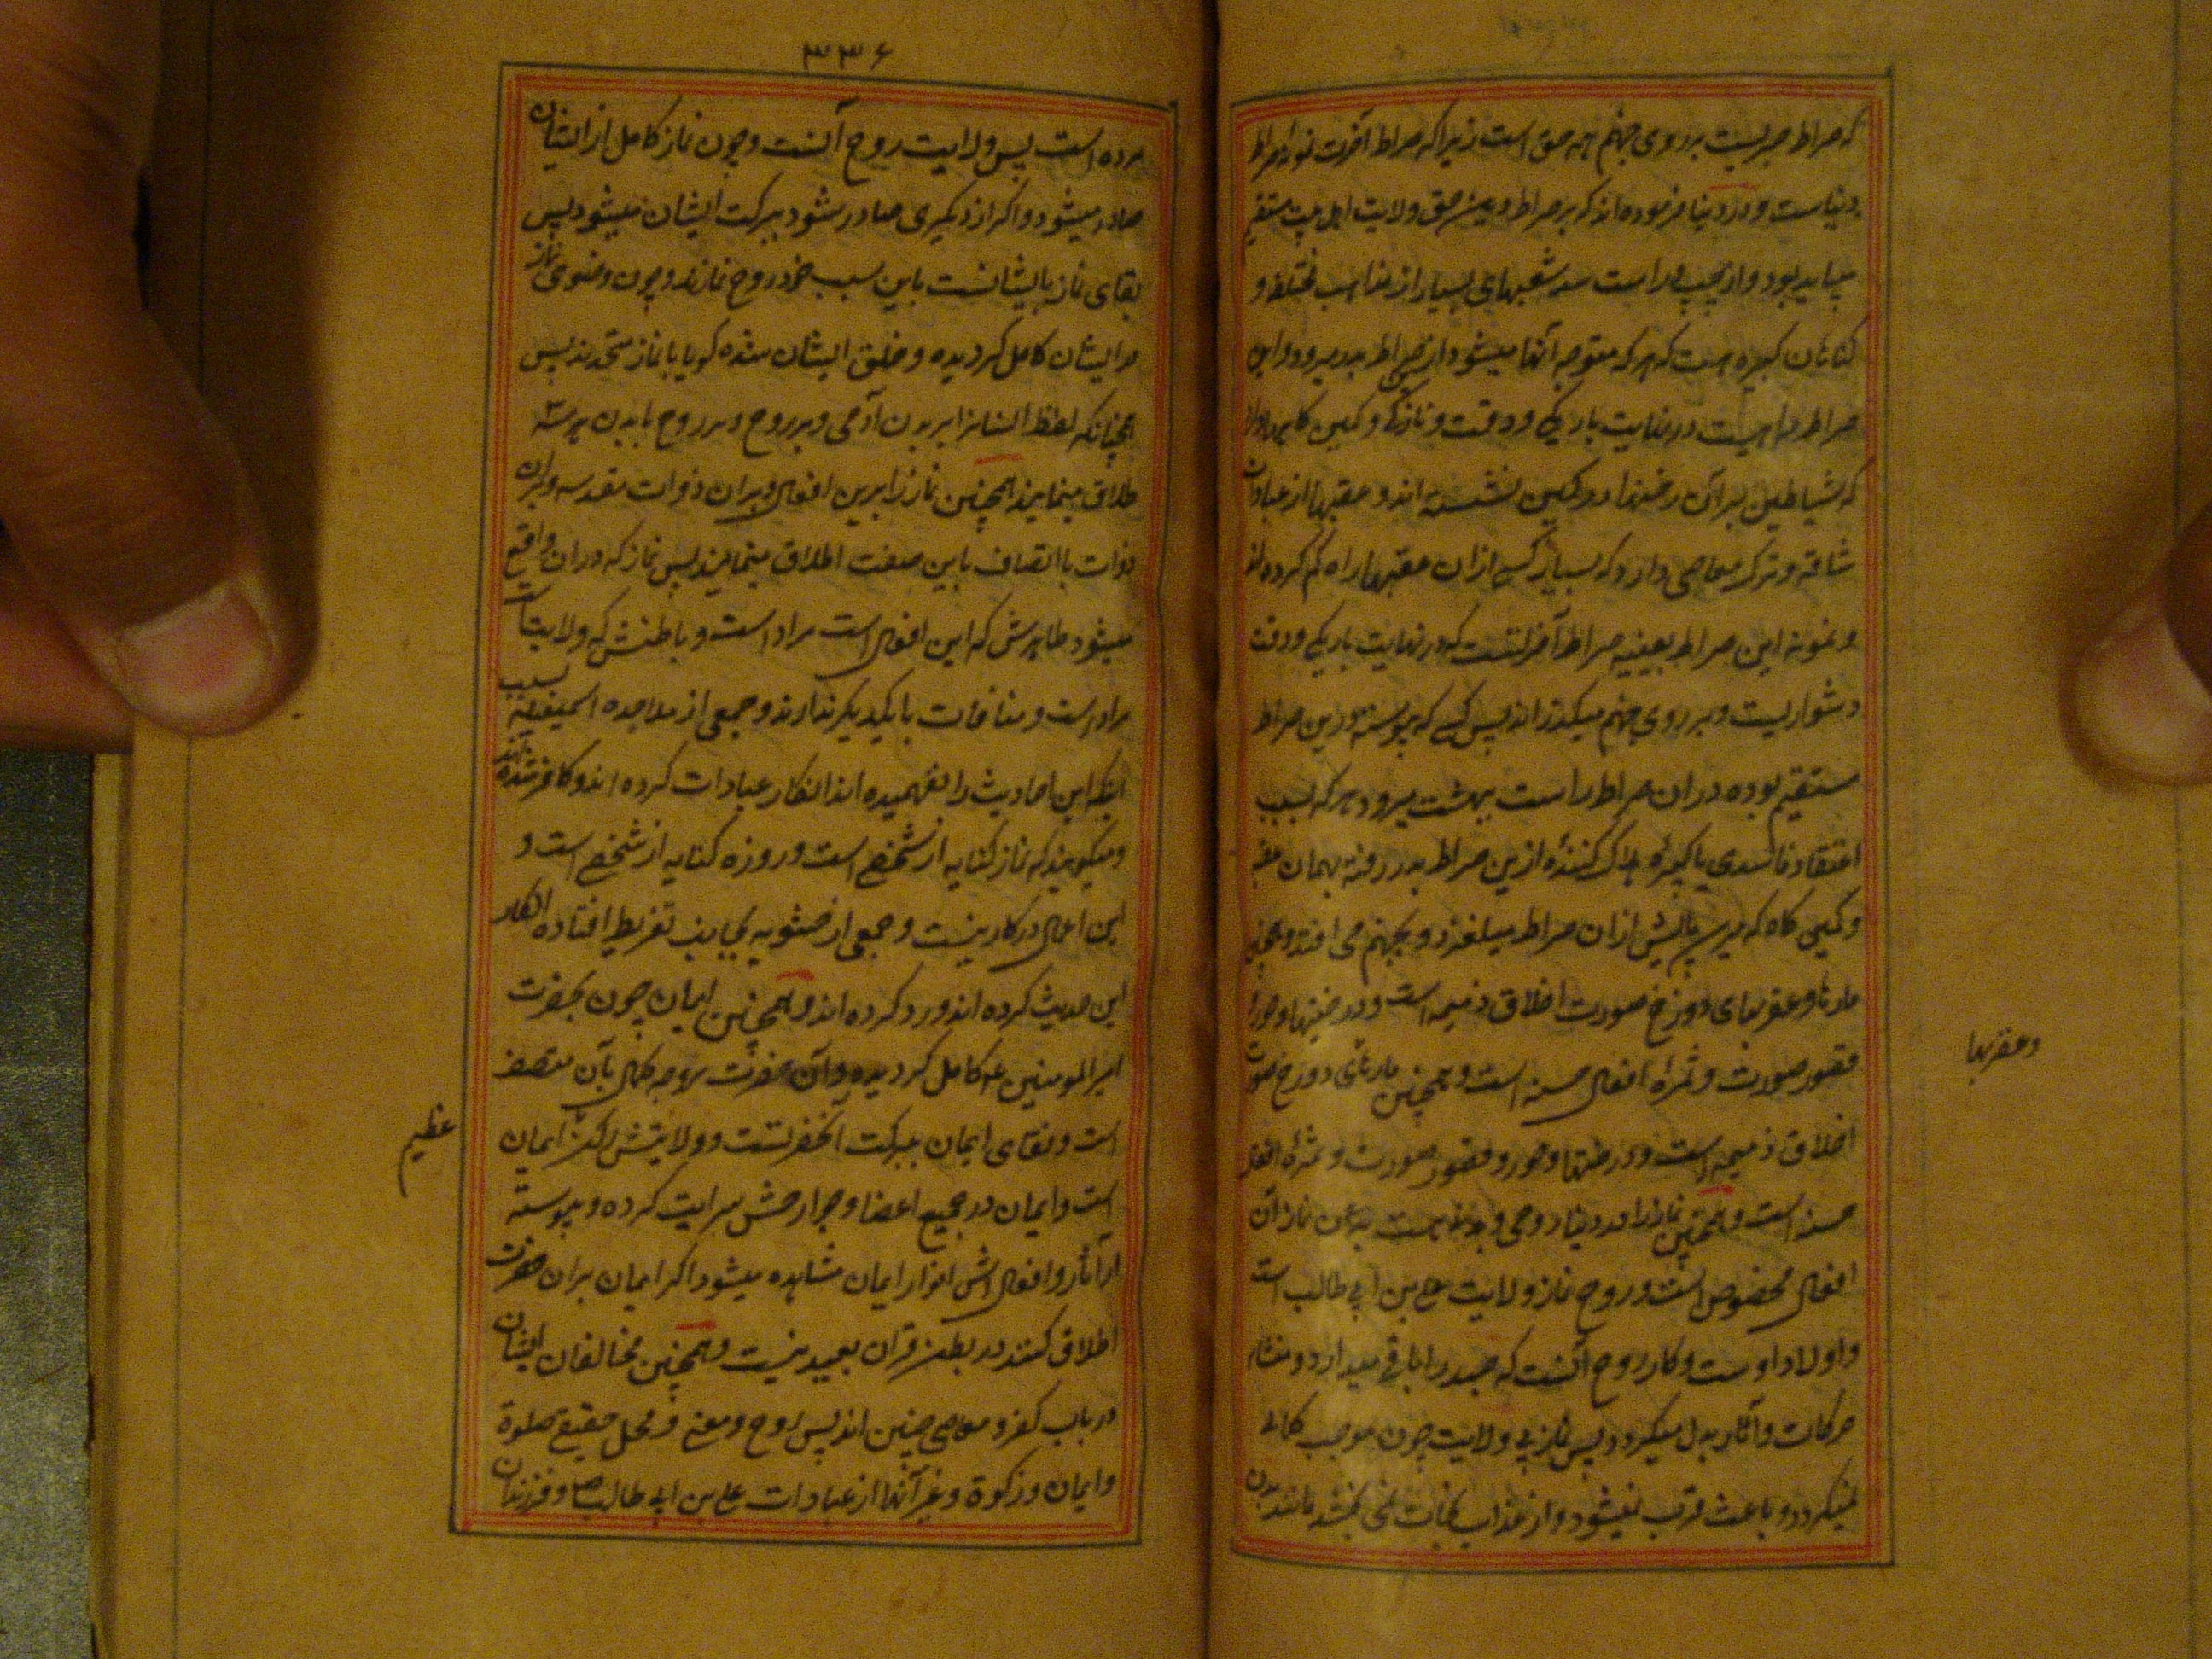 که صراط جسریست بر روی جهنم همه حق است زیرا که صراط آخرت نمونه صراط
دنیاست و در دنیا فرموده‌اند که بر صراط دین حق ولایت اهل بیت مستقیم
میباید بود و از چپ و راست شعبهای بسیار از مذاهب مختلفه و
کناهان کبیره هست که هر که متوجه آنها میشود ازین صراط بدر میرود و این
صراط راهیست در نهایت باریکی و دقت و نازکی و کمین کاهها دارد
که شیاطین بر آن رخنها در کمین نشسته‌اند و عقبها از عبادات
شاقه و ترک معاصی دارد که بسیار کسی ازان عقبها راه کم کرده‌اند
و نمونه این صراط بعینه صراط آخرتست که در نهایت باریکی و دقت
دشواریست و بر روی جهنم میکذرانند پس کسی که پیوسته درین صراط
مستقیم بوده دران صراط راست ببهشت میرود و هر که بسبب
اعتقاد فاسدی یا کبیرهٔ هلاک کنندهٔ ازین صراط بدر رفته بهمان عقبه
و کمین کاه که میرسد پایش ازان صراط میلغزد و بجهنم می افتد و همچنین
مارها و عقربهای دوزخ صورت اخلاق ذمیمه است و درختها و حور و
قصور صورت و ثمرهٔ افعال حسنه است و همچنین مارهای دوزخ صورت
وعقربها
اخلاق ذمیمه است و درختها و حور و قصور صورت و ثمرهٔ افعال
حسنه است و همچنین نماز را در دنیا روحی و بدنی هست بدن نماز آن
افعال مخصوص است و روح نماز ولایت علی بن ابی طالب است
و اولاد اوست و کار روح آنست که جسد را باقی میدارد و منشاء
حرکات و آثار بدن میکردد پس نماز بی ولایت چون موجب کمالی
نمیکردد و باعث قرب نمیشود و از عذاب نجات نمی بخشد مانند بدن
۳۳۶
مرده است پس ولایت روح آنست و چون نماز کامل از ایشان
صادر میشود و اکر از دیکری صادر شود ببرکت ایشان میشود پس
بقای نماز بایشانست باین سبب خود روح نمازند و چون وصف نماز
در ایشان کامل کردیده و خلق ایشان شده کویا با نماز متحدند پس
همچنانکه لفظ انسانرا بر بدن آدمی و بر روح و بر روح با بدن
اطلاق مینمایند همچنین نماز را برین افعال و بران ذوات مقدسه و بران
ذوات با اتصاف باین صفت اطلاق مینمایند پس نماز که در ان واقع
میشود ظاهرش که این افعال است مراد است و باطنش که ولایتست
مراد است و منافات با یکدیکر ندارند و جمعی از ملاحده اسمعیلیه بسبب
اینکه این احادیث را نفهمیده‌اند انکار عبادات کرده‌اند و کافر شده‌اند
و میکویند که نماز کنایه از شخصی است و روزه کنایه از شخصی است و
این اعمال در کار نیست و جمعی از حشویه بجانب تفریط افتاده انکار
این حدیث کرده‌اند و رد کرده‌اند و همچنین ایمان چون بحضرت
امیر المومنین ع کامل کردیده و آن حضرت بروجه کمال بآن متصف
است و بقای ایمان ببرکت آنحضرتست و ولایتش رکن ایمان
عظیم
است و ایمان در جمیع اعضا و جوارحش سرایت کرده و پیوسته
از آثار و افعالش انوار ایمان مشاهده میشود اکر ایمان بران حضرت
اطلاق کنند در بطن قران بعید نیست و همچنین مخالفان ایشان
در باب کفر و معاصی چنین‌اند پس روح و معنی و محل حقیقی صلوة
و ایمان و زکوة و غیر آنها از عبادات علی بن ابی طالب ص و فرزندان